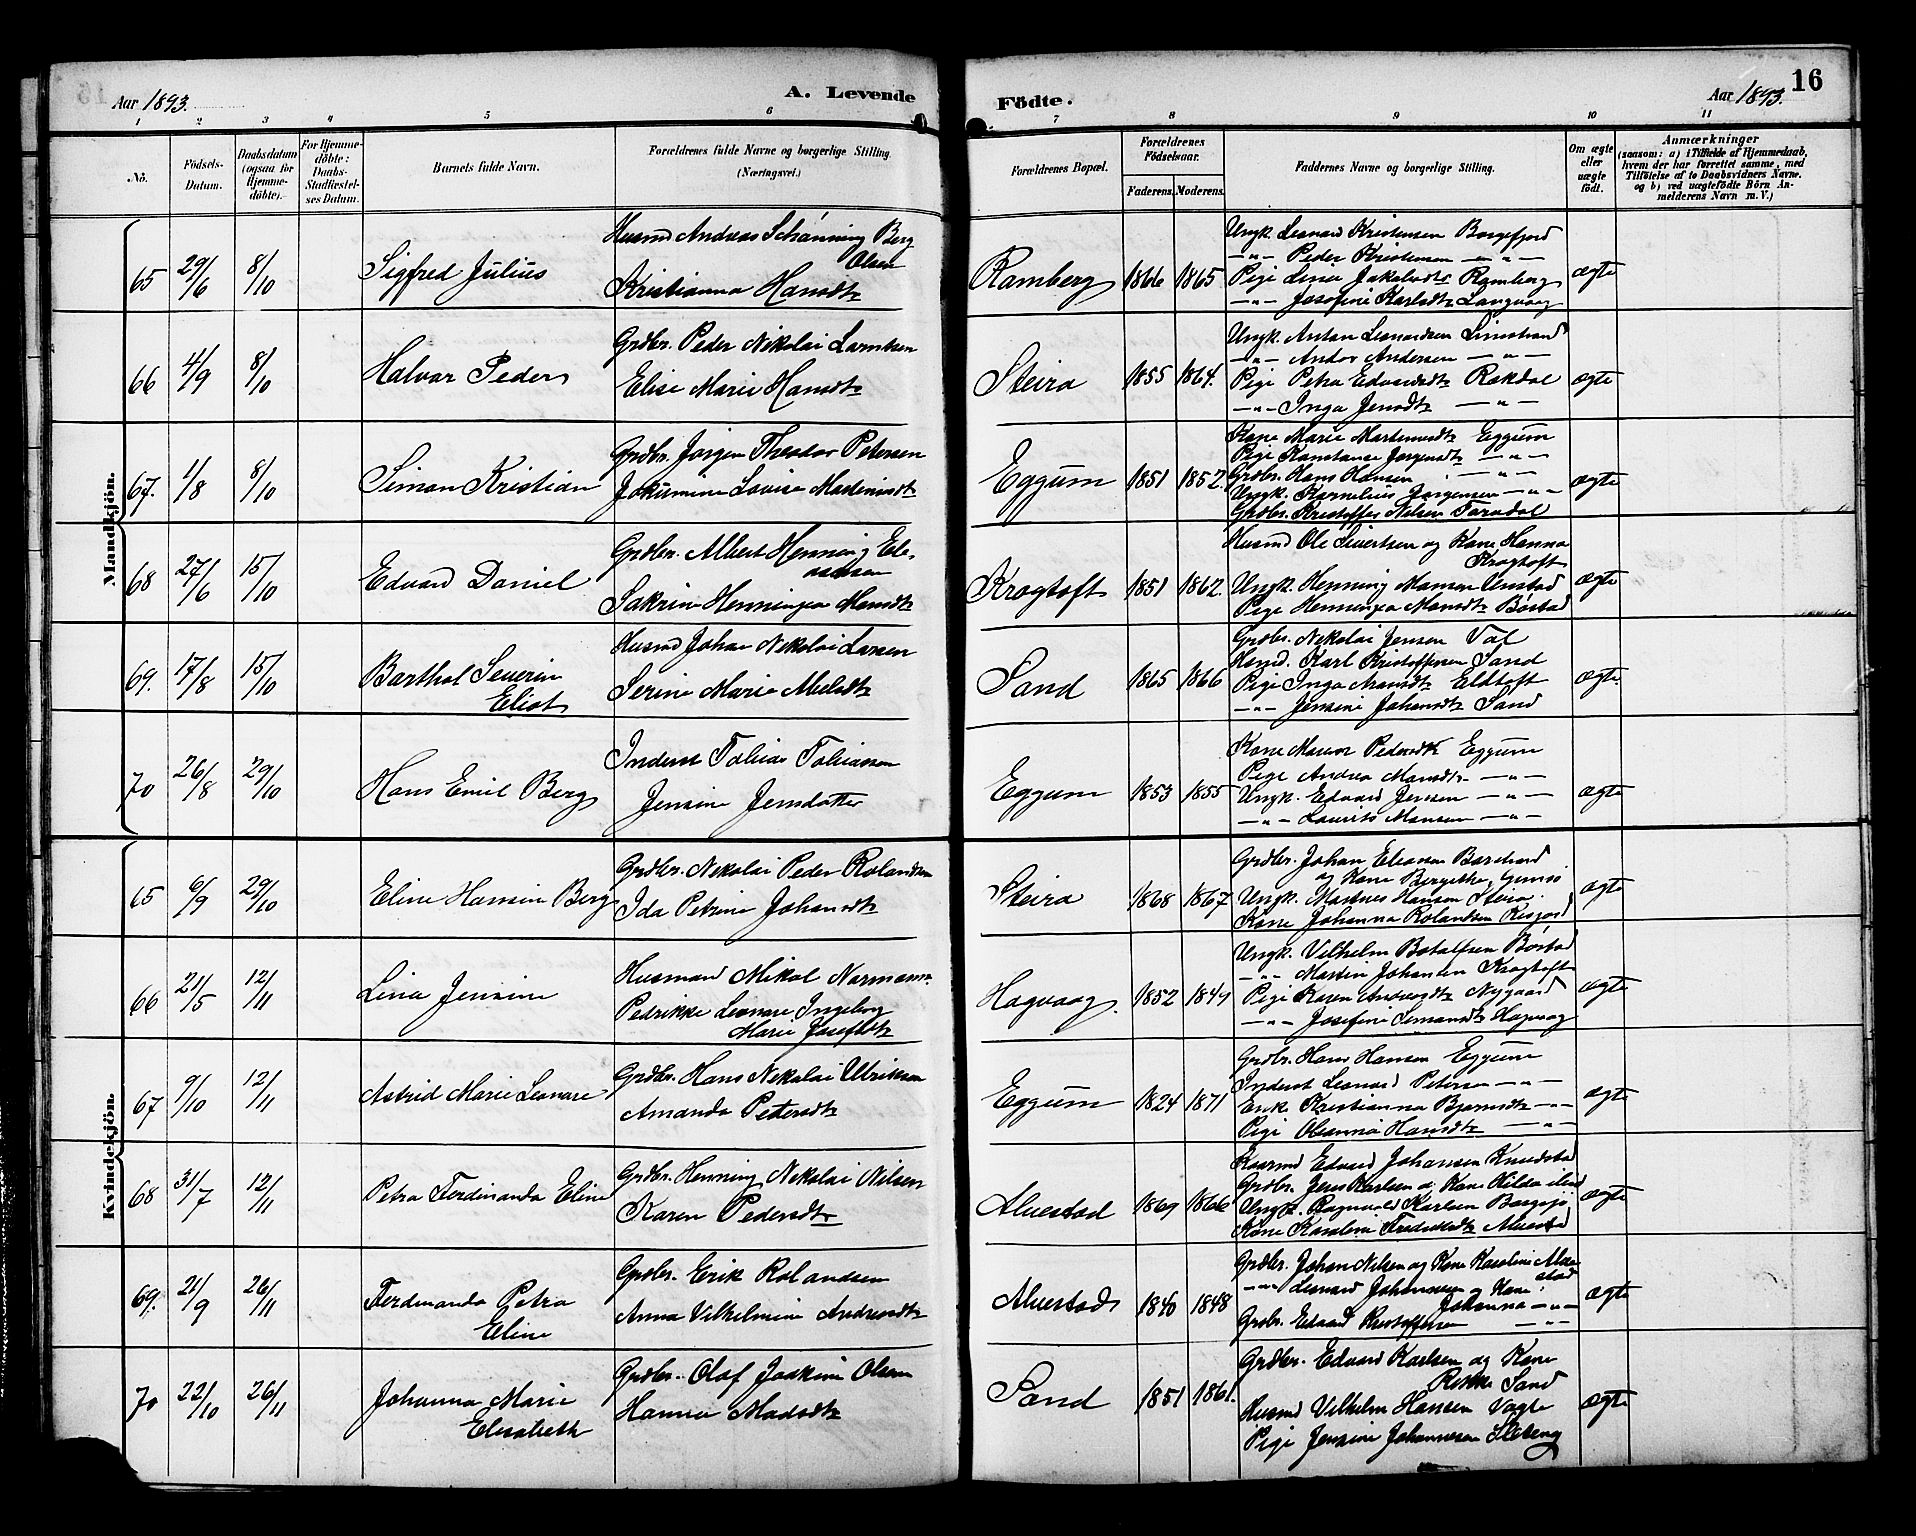 Aar 1893.
A. Levende
Födte.
Aar 1893.
16
1 2 3 4 5 6 7 8 9 10 11
No.
Födsels-
Datum.
Daabsdatum
(ogsaa for
Hjemme-
döbte).
For Hjemme-
döbte:
Daabs-
Stadfæstel-
ses Datum.
Barnets fulde Navn.
Forældrenes fulde Navne og borgerlige Stilling.
(Næringsvei.)
Forældrenes Bopæl.
Forældrenes
Födselsaar.
Faderens. Moderens.
Faddernes Navne og borgerlige Stilling.
Om ægte
eller
uægte
födt.
Anmærkninger
(saasom: a) i Tilfælde af Hjemmedaab,
hvem der har forrettet samme, med
Tilföielse af to Daabsvidners Navne.
og b) ved uægtefödte Börn An-
melderens Navn m. V.)
Mandkjön.
65 29/6 8/10 Sigfred Julius
Husmd Andreas Schønning Berg
Olsen
Kristianna Hansdtr
Ramberg 1866 1865
Ungk. Leonard Kristensen Borgefjord
—"— Peder Kristensen —"—
Pige Lina Jakobsdtr Ramberg
—"— Josefine Karlsdtr Langvaag
ægte
66 4/9 8/10 Halvar Peder
Grdbr. Peder Nikolai Larntsen
Elise Marie Hansdtr
Steira 1855 1864.
Ungk. Anton Leonardsen Limstrand
—"— Andor Andersen —"—
Pige Petra Edvardsdtr Rækdal
—"— Inga Jensdtr —"—
ægte
67. 1/8 8/10 Simon Kristian
Grdbr. Jørgen Theodor Petersen
Jakumine Lovise Martinusdtr
Eggum 1851 1852.
Kone Marie Martinusdtr Eggum
Pige Konstanse Jørgensdtr —"—
Grdbr. Hans Hansen —"—
Ungk. Kornelius Jørgensen —"—
Grdbr. Kristoffer Nilsen Taradal
ægte
68 27/6 15/10 Edvard Daniel
Grdbr. Albert Henning Ele-
asensen
Sakrine Henningea Hansdtr
Krogtoft 1851 1862.
Husmd Ole Sivertsen og Kone Hanna
Krogtoft
Ungk. Henning Hansen Unstad
Pige Henningea Hansdtr Børstad
ægte
69. 17/8 15/10 Barthol Severin
Eliot
Husmd Johan Nikolai Larsen
Serine Marie Abelsdtr
Sand 1865 1866
Grdbr. Nikolai Jensen Val
Husmd. Karl Kristoffersen Sand
Pige Inga Hansdtr Eldtoft
—"— Jensine Johansdtr Sand
ægte.
70 26/8 29/10 Hans Emil Berg
Inderst Tobias Tobiassen
Jensine Jensdatter
Eggum 1853 1855
Kone Maren Pedersdtr Eggum
Pige Andrea Hansdtr —"—
Ungk. Edvard Jensen —"—
—"— Laurits Hansen —"—
ægte
Kvindekjön.
65 6/9 29/10 Eline Hansine Berg
Grdbr. Nikolai Peder Rolandsen
Ida Petrine Johansdtr
Steira 1868 1867
Grdbr. Johan Eleasen Barstrand
og Kone Bergitha Gimsø
Ungk. Martines Hansen Steira.
Kone Johanna Rolandsen Risjord
ægte
66 21/5 12/11 Lina Jensine
Husmand Mikal Normann
Pedrikke Leonare Ingeborg
Marie Josefsdtr
Hagvaag. 1852 1849
Ungk. Vilhelm Botolfsen Børstad
—"— Martin Johansen Krogtoft
Pige Karen Andreasdtr Nygaard
—"— Josefine Simonsdtr Hagvaag
ægte
67 9/10 12/11 Astrid Marie Leonare
Grdbr. Hans Nikolai Ulriksen
Amanda Pedersdtr
Eggum 1824 1871
Grdbr. Hans Hansen Eggum
Inderst Leonard Petersen —"—
Enk. Kristianna Bjørnsdtr —"—
Pige Oleanna Hansdtr —"—
ægte
68 31/7 12/11 Petra Ferdinanda Eline
Grdbr. Henning Nikolai Nilsen
Karen Pedersdtr
Alvestad 1869 1866
Edvard Johansen Knudstad
Grdbr. Jens Karlsen og Kone Hilda
Ungk. Ragnvald Karlsen
Kone Karoline Fredriksdtr Alvestad
ægte
69. 21/9 26/11 Ferdinanda Petra
Eline
Grdbr. Erik Rolandsen
Anna Vilhelmine Andreasdtr
Alvestad 1840 1848
Grdbr. Johan Nilsen og Kone Karoline Alve-
stad
—"— Leonard Johannesen og Kone
Johanna —"—
Grdbr. Edvard Kristoffersen —"—
ægte
70 22/10 26/11 Johanna Marie
Elisabeth
Grdbr. Olaf Joakim Olsen
Hanna Madsdtr
Sand 1851 1861.
Grdbr. Edvard Karlsen og Kone
Rikke Sand
Husmd Vilhelm Hansen Vagte
Pige Jensine Johannesen
ægte